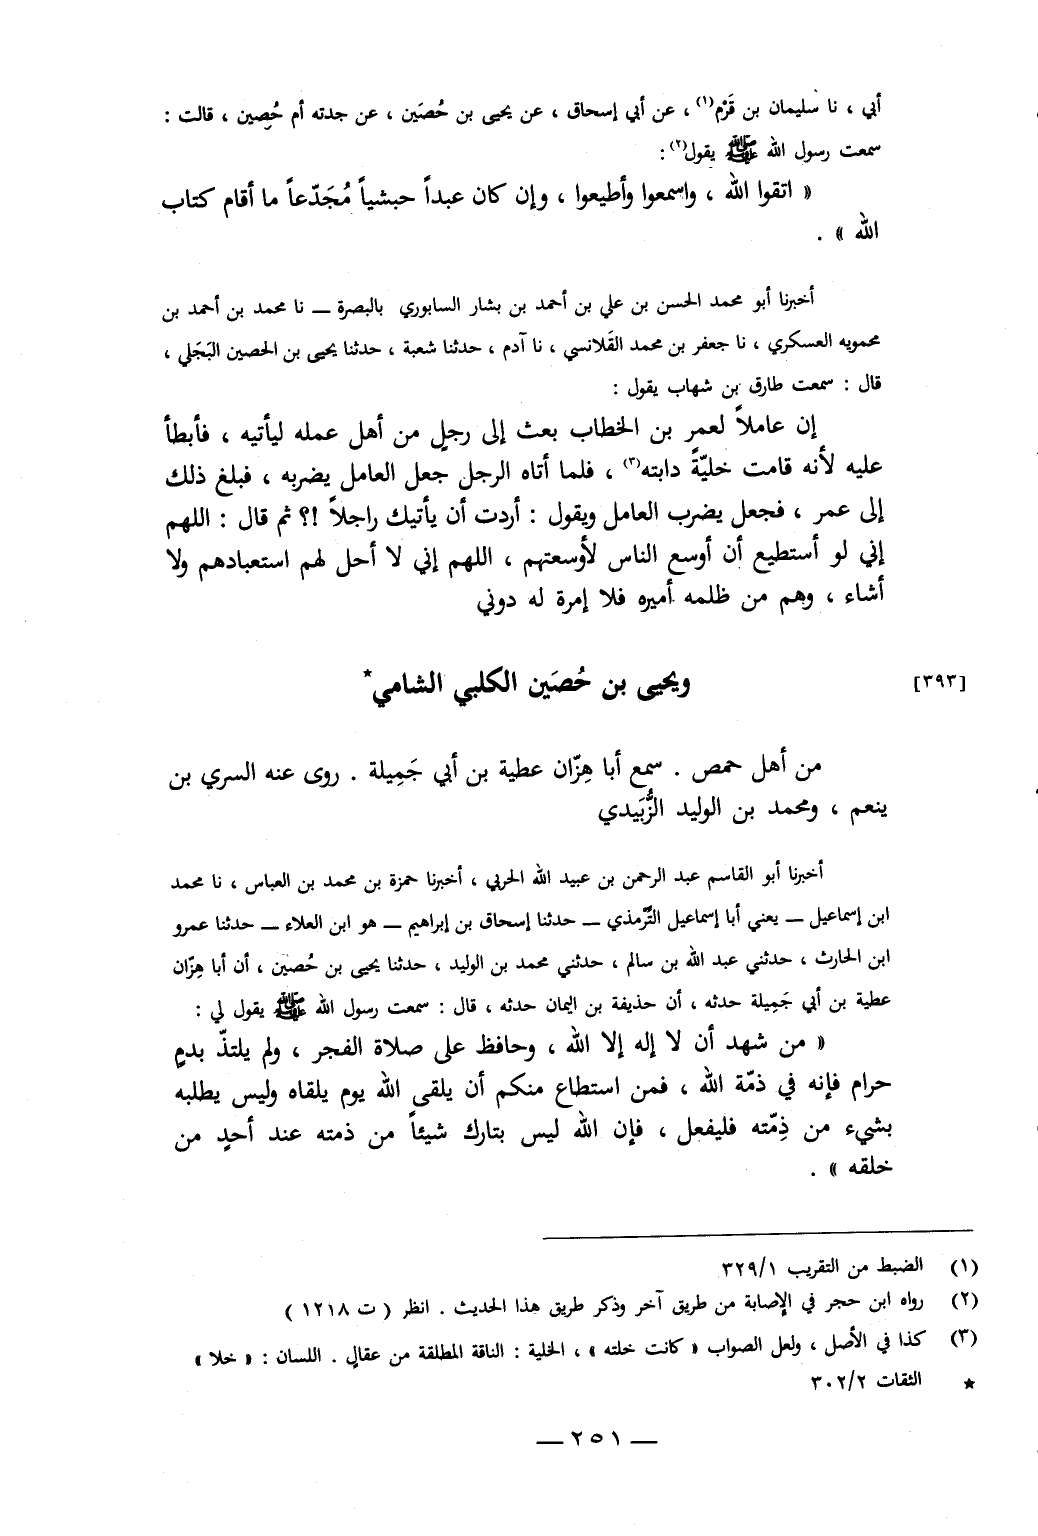 أبي ، نا سليمان بن قَرْم(١) ، عن أبي إسحاق ، عن يحيى بن حُصَين ، عن جدته أم حُصين ، قالت :
سمعت رسول الله ﷺ يقول(٢) :
« اتقوا الله ، واسمعوا وأطيعوا ، وإن كان عبداً حبشياً مُجَدّعاً ما أقام كتاب
الله » .
أخبرنا أبو محمد الحسن بن علي بن أحمد بن بشار السابوري بالبصرة ــ نا محمد بن أحمد بن
محمويه العسكري ، نا جعفر بن محمد القَلانسي ، نا آدم ، حدثنا شعبة ، حدثنا يحيى بن الحصين البَجَلي ،
قال : سمعت طارق بن شهاب يقول :
إن عاملاً لعمر بن الخطاب بعث إلى رجلٍ من أهل عمله ليأتيه ، فأبطأ
عليه لأنه قامت خليّةً دابته(٣) ، فلما أتاه الرجل جعل العامل يضربه ، فبلغ ذلك
إلى عمر ، فجعل يضرب العامل ويقول : أردت أن يأتيك راجلاً !؟ ثم قال : اللهم
إني لو أستطيع أن أوسع الناس لأوسعتهم ، اللهم إني لا أحل لهم استعبادهم ولا
أشاء ، وهم من ظلمه أميره فلا إمرة له دوني
[٣٩٣] ويحيى بن حُصَين الكلبي الشامي*
من أهل حمص . سمع أبا هِزّان عطية بن أبي جَمِيلة . روى عنه السري بن
ينعم ، ومحمد بن الوليد الزُّبَيدي
أخبرنا أبو القاسم عبد الرحمن بن عبيد الله الحربي ، أخبرنا حمزة بن محمد بن العباس ، نا محمد
ابن إسماعيل ــ يعني أبا إسماعيل التّرمذي ــ حدثنا إسحاق بن إبراهيم ــ هو ابن العلاء ــ حدثنا عمرو
ابن الحارث ، حدثني عبد الله بن سالم ، حدثني محمد بن الوليد ، حدثنا يحيى بن حُصين ، أن أبا هِزّان
عطية بن أبي جَمِيلة حدثه ، أن حذيفة بن اليمان حدثه ، قال : سمعت رسول الله ﷺ يقول لي :
« من شهد أن لا إله إلا الله ، وحافظ على صلاة الفجر ، ولم يلتذّ بدمٍ
حرام فإنه في ذمّة الله ، فمن استطاع منكم أن يلقى الله يوم يلقاه وليس يطلبه
بشيء من ذِمّته فليفعل ، فإن الله ليس بتارك شيئاً من ذمته عند أحدٍ من
خلقه » .
(١) الضبط من التقريب ٣٢٩/١
(٢) رواه ابن حجر في الإصابة من طريق آخر وذكر طريق هذا الحديث . انظر ( ت ١٢١٨ )
(٣) كذا في الأصل ، ولعل الصواب « كانت خلته » ، الخلية : الناقة المطلقة من عقالٍ . اللسان : « خلا »
★ الثقات ٣٠٢/٢
ــ ٢٥١ ــ